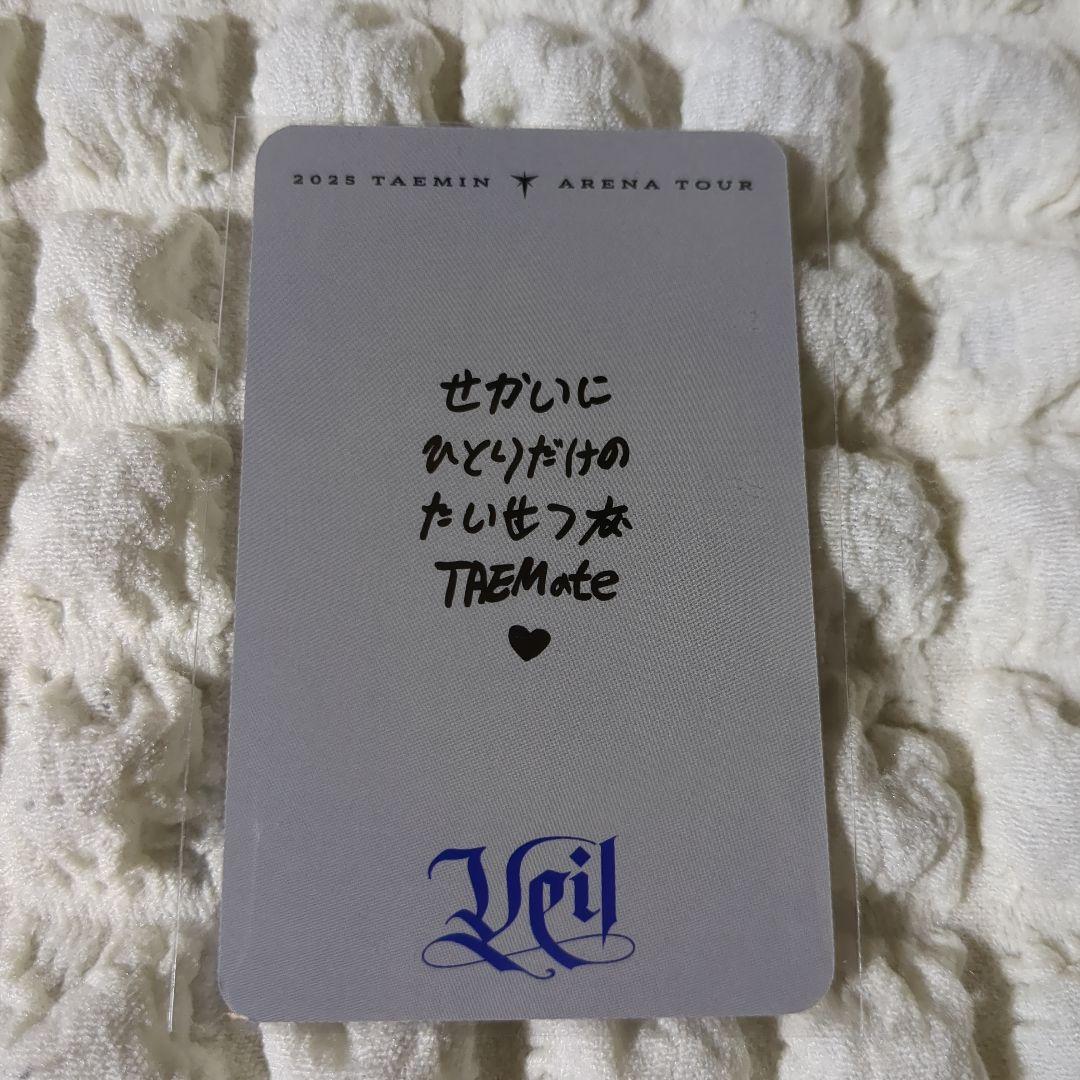 2025 TAEMIN ARENA TOUR
せかいに
ひとりだけの
たいせつな
TAEMate
Veil